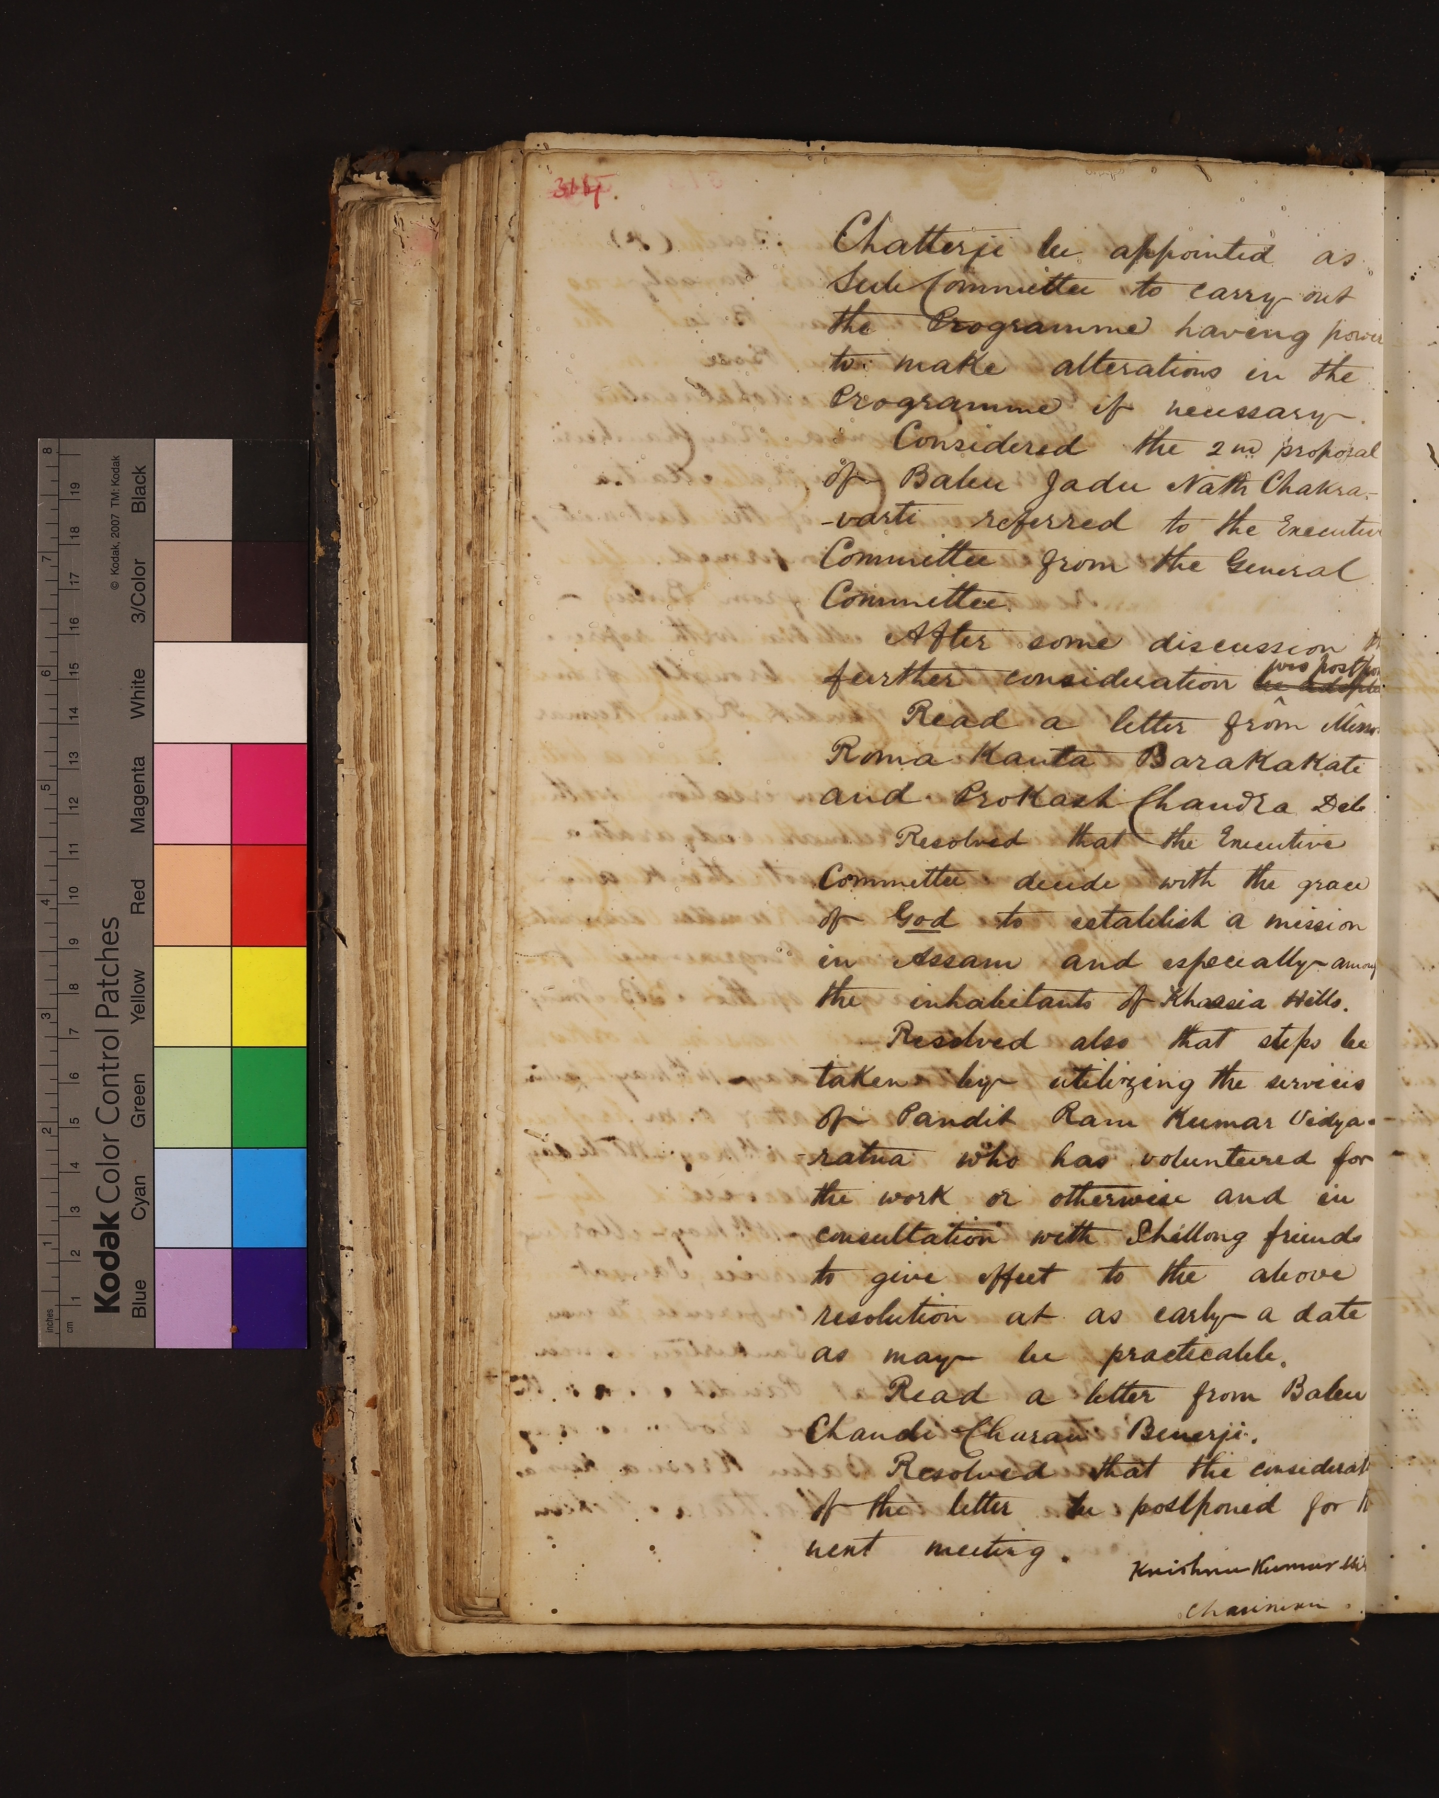 Chatterji be appointed as
Sub Committee to carry out
the Programme having power
to make alterations in the
Programme if necessary.
Considered the 2nd proposal
of Babu Jadu Nath Chakra-
-varti referred to the Executive
Committee from the General
Committee.
After some discussion
was postpon
further consideration be adopte
Read a letter from Messrs
Roma Kanta Barakakati
and Prokash Chandra Deb
Resolved that the Executive
Committee decide with the grace
of God to establish a mission
in Assam and especially among
the inhabitants of Khassia Hills.
Resolved also that steps be
taken by utilizing the services
of Pandit Ram Kumar Vidya-
-ratna who has volunteered for
the work or otherwise and in
consultation with Shillong friends
to give effect to the above
resolution at as early a date
as may be practicable.
Read a letter from Babu
Chandi Churan Benerji.
Resolved that the considerat
of the letter be postponed for
next meeting.
Krishna Kumar Mit
Chairman
Kodak Color Control Patches
© Kodak, 2007 TM: Kodak
Blue Cyan Green Yellow Red Magenta White 3/Color Black
inches 1 2 3 4 5 6 7 8
cm 1 2 3 4 5 6 7 8 9 10 11 12 13 14 15 16 17 18 19